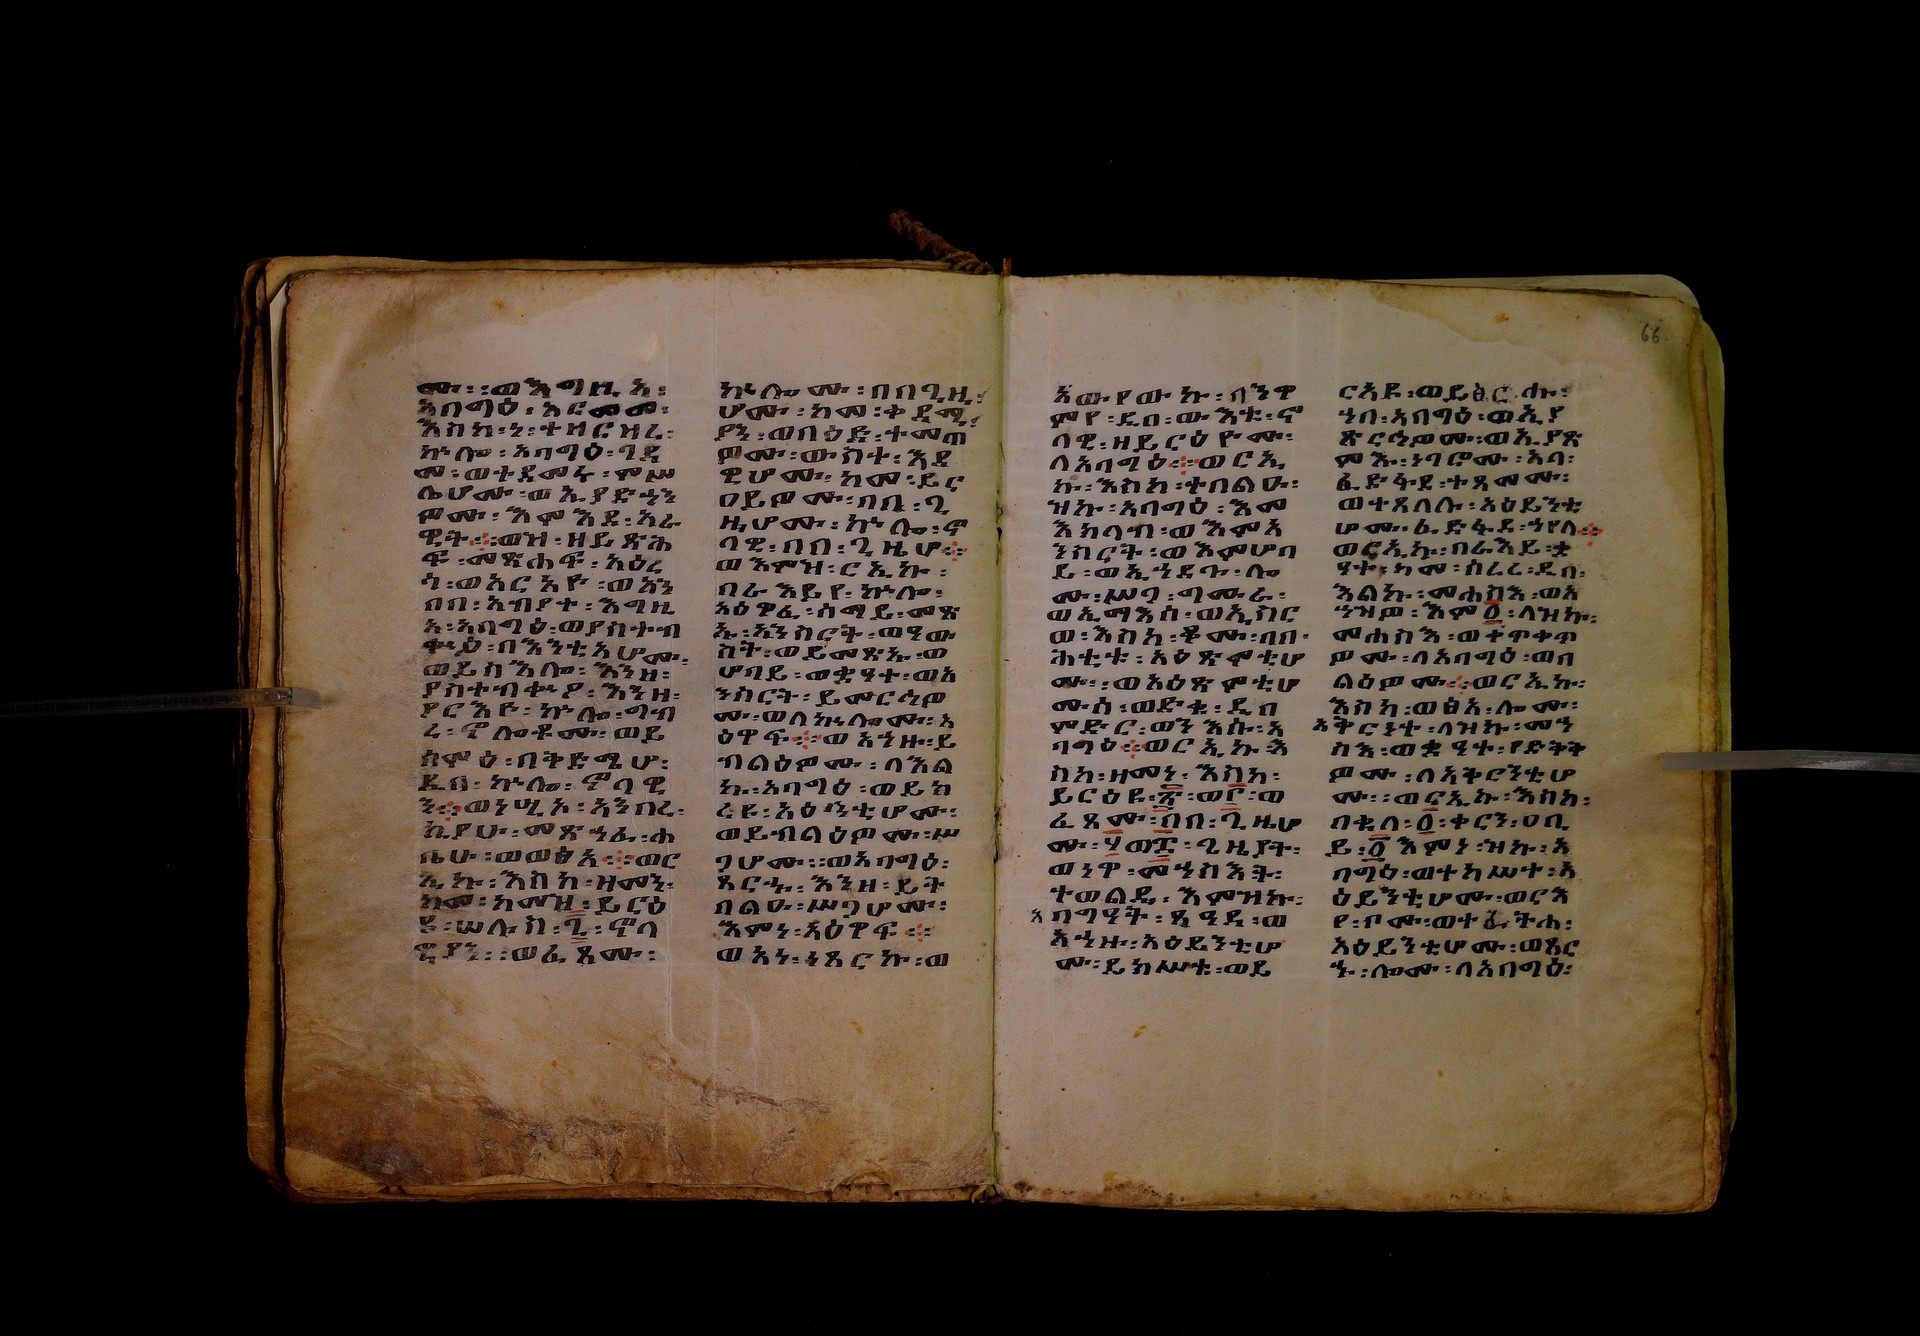 ሙ፡፡ወእግዚአ፡
አባግዕ፡አርመመ፡
እስከ፡ነ፡ተዘርዘረ፡
ኵሎ፡አባግዕ፡ገዳ
መ፡ወተደመሩ፡ምሥ
ሌሆሙ፡ወኢያድኃን
ዎሙ፡እምእደ፡አራ
ዊት፡፡ወዝ፡ዘይጽሕ
ፍ፡መጽሐፍ፡አዕረ
ገ፡ወአርአዮ፡ወአን
በበ፡አብያተ፡እግዚ
አ፡አባግዕ፡ወያስተብ
ቍዖ፡በእንቲአሆሙ፡
ወይስእሎ፡እንዘ፡
ያስተብቍዖ፡እንዘ፡
ያርእዮ፡ኵሎ፡ግብ
ረ፡ኖሎቶሙ፡ወይ
ሰምዕ፡በቅድሜሁ፡
ዲበ፡ኵሎ፡ኖላዊ
ን፡፡ወነሢአ፡አንበረ፡
ኪያሁ፡መጽኀፈ፡ሐ
ቤሁ፡ወወፅአ፡፡ወር
ኢኩ፡እስከ፡ዘመን፡
ከመ፡ከመዝ፡ይርዕ
ዩ፡ሠሉስ፡፯፡ኖላ
ዊያን፡፡ወፈጸሙ፡
ኵሎሙ፡በበጊዜ
ሆሙ፡ከመ፡ቀዳሚ
ያን፡ወበዕድ፡ተመጠ
ዎሙ፡ውስተ፡እደ
ዊሆሙ፡ከመ፡ይር
ዐይዎሙ፡በበ፡ጊ
ዜሆሙ፡ኵሎ፡ኖ
ላዊ፡በበ፡ጊዜሆ፡፡
ወእምዝ፡ርኢኩ፡
በራእይየ፡ኵሎ፡
አዕዋፈ፡ሰማይ፡መጽ
ኡ፡አንስርት፡ወዓው
ስት፡ወይመጽኡ፡ወ
ሆባይ፡ወቋዓተ፡ወአ
ንስርት፡ይመርሕዎ
ሙ፡ወለኵሎሙ፡አ
ዕዋፍ፡፡ወአኀዙ፡ይ
ብልዕዎሙ፡ለእል
ኩ፡አባግዕ፡ወይከ
ረዩ፡አዕይንቲሆሙ፡
ወይብልዕዎሙ፡ሥ
ጋሆሙ፡፡ወአባግዕ፡
ጸርሑ፡እንዘ፡ይት
በልዑ፡ሥጋሆሙ፡
እምነ፡አዕዋፍ፡፡
ወአነ፡ነጸርኩ፡ወ
አውየውኩ፡በንዋ
ምየ፡ዲበ፡ውእቱ፡ኖ
ላዊ፡ዘይርዕዮሙ፡
ለአባግዕ፡፡ወርኢ
ኩ፡እስከ፡ተበልዑ፡
ዝኩ፡አባግዕ፡እመ
እከላብ፡ወእምአ
ንስርት፡ወእምሆባ
ይ፡ወኢኀደጉ፡ሎ
ሙ፡ሥጋ፡ግሙራ፡
ወኢማእሰ፡ወኢስር
ወ፡እስከ፡ቆሙ፡ባበ፡
ሕቲቱ፡አዕጽምቲሆ
ሙ፡፡ወአዕጽምቲሆ
ሙ፡ሰ፡ወድቁ፡ዲበ
ምድር፡ወንእሱ፡አ
ባግዕ፡፡ወርኢኩ፡እ
ስከ፡ዘመነ፡እስከ፡
ይርዕዩ፡፳፡ወ፫፡ወ
ፈጸሙ፡በበ፡ጊዜሆ
ሙ፡፶ወ፰፡ጊዜያት፡
ወነዋ፡መኀስእት፡
ተወልዱ፡እምዝኩ፡
አባግዓት፡ጸዓዳ፡ወ
አኀዙ፡አዕይንቲሆ
ሙ፡ይክሥቱ፡ወይ
ርአዩ፡ወይፅርሑ፡
ኀበ፡አባግዕ፡ወኢያ
ጽርኅዎሙ፡ወኢያጽ
ምኡ፡ነገሮሙ፡አላ፡
ፈድፋደ፡ተጸመሙ፡
ወተጸለሉ፡አዕይንቲ
ሆሙ፡ፈድፋደ፡ኀየለ፡፡
ወርኢኩ፡በራእይ፡ቋ
ዓተ፡ከመ፡ሰረረ፡ዲበ፡
እልኩ፡መሐስእ፡ወአ
ኀዝዎ፡እም፩፡ለዝኩ፡
መሐስእ፡ወቀጥቀጥ
ዎሙ፡ለአባግዕ፡ወበ
ልዕዎሙ፡፡ወርኢኩ፡
እስከ፡ወፅአ፡ሎሙ፡
አቅርንተ፡ለዝኩ፡መኀ
ስእ፡ወቋዓተ፡ያድቅቅ
ዎሙ፡ለአቅርንቲሆ
ሙ፡፡ወርኢኩ፡እስከ፡
በቈለ፡፩፡ቀርን፡ዐቢ
ይ፡፩እምነ፡ዝኩ፡አ
ባግዕ፡ወተከሥተ፡አ
ዕይንቲሆሙ፡ወርእ
አዕይንቲሆሙ፡ወጸር
ኀ፡ሎሙ፡ለአባግዕ፡